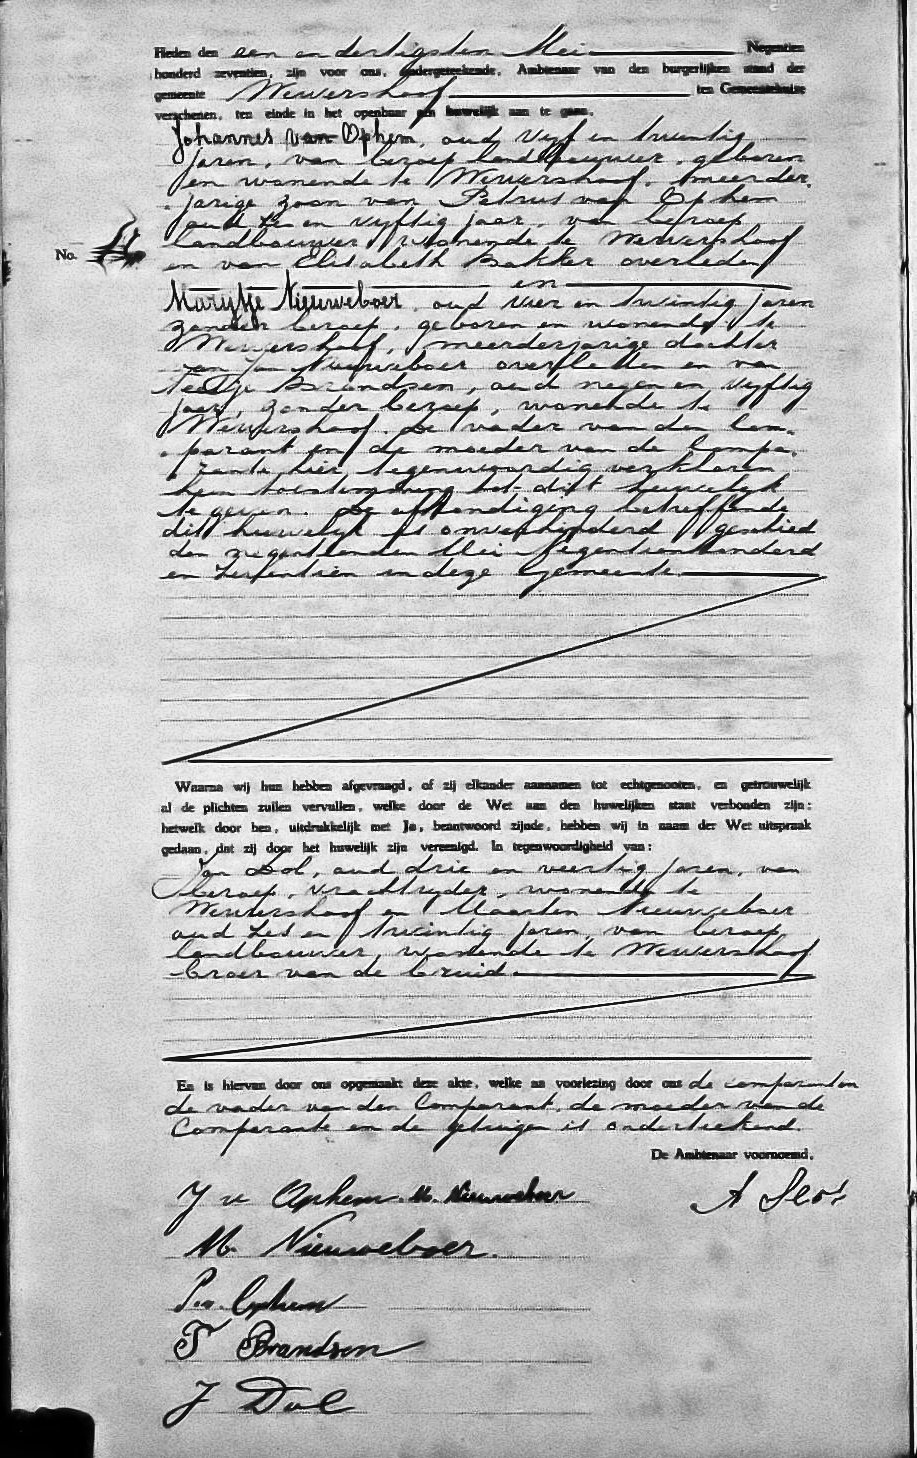 Heden den een en dertigsten Mei Negentien
honderd zeventien, zijn voor ons, ondergeteekende, Ambtenaar van den burgerlijken stand der
gemeente Wervershoof ten Gemeentehuize
verschenen, ten einde in het openbaar een huwelijk aan te gaan,
Johannes van Ophem, oud vijf en twintig
jaren, van beroep landbouwer, geboren
en wonende te Wervershoof, meerder-
jarige zoon van Petrus van Ophem
oud zes en vyftig jaar, van beroep
landbouwer, wonende te Wervershoof
No.
en van Elisabeth Bakker overleden
en
Marijtje Nieuweboer, oud vier en twintig jaren
zonder beroep, geboren en wonende te
Wervershoof, meerderjarige dochter
van Jan Nieuweboer overleden en van
Teetje Brandsen, oud negen en vyftig
jaar, zonder beroep, wonende te
Wervershoof. De vader van den Com-
parant en de moeder van de Compa-
rante hier tegenwoordig verklaren
hun toestemming tot dit huwelyk
te geven. De afkondiging betreffende
dit huwelyk is onverhinderd geschied
den negentienden Mei Negentienhonderd
en zeventien in deze gemeente.
Waarna wij hun hebben afgevraagd, of zij elkander aannamen tot echtgenooten, en getrouwelijk
al de plichten zullen vervullen, welke door de Wet aan den huwelijken staat verbonden zijn;
hetwelk door hen, uitdrukkelijk met Ja, beantwoord zijnde, hebben wij in naam der Wet uitspraak
gedaan, dat zij door het huwelijk zijn vereenigd. In tegenwoordigheid van:
Jan Dol, oud drie en veertig jaren, van
beroep, vrachtryder, wonende te
Wervershoof en Maarten Nieuweboer
oud zes en twintig jaren, van beroep
landbouwer, wonende te Wervershoof
broer van de bruid.
En is hiervan door ons opgemaakt deze akte, welke na voorlezing door ons de comparanten
de vader van den Comparant, de moeder van de
Comparante en de getuigen is onderteekend.
De Ambtenaar voornoemd,
J v Ophem. M. Nieuweboer
A
M. Nieuweboer.
P. v. Ophem
T Brandsen
J Dol